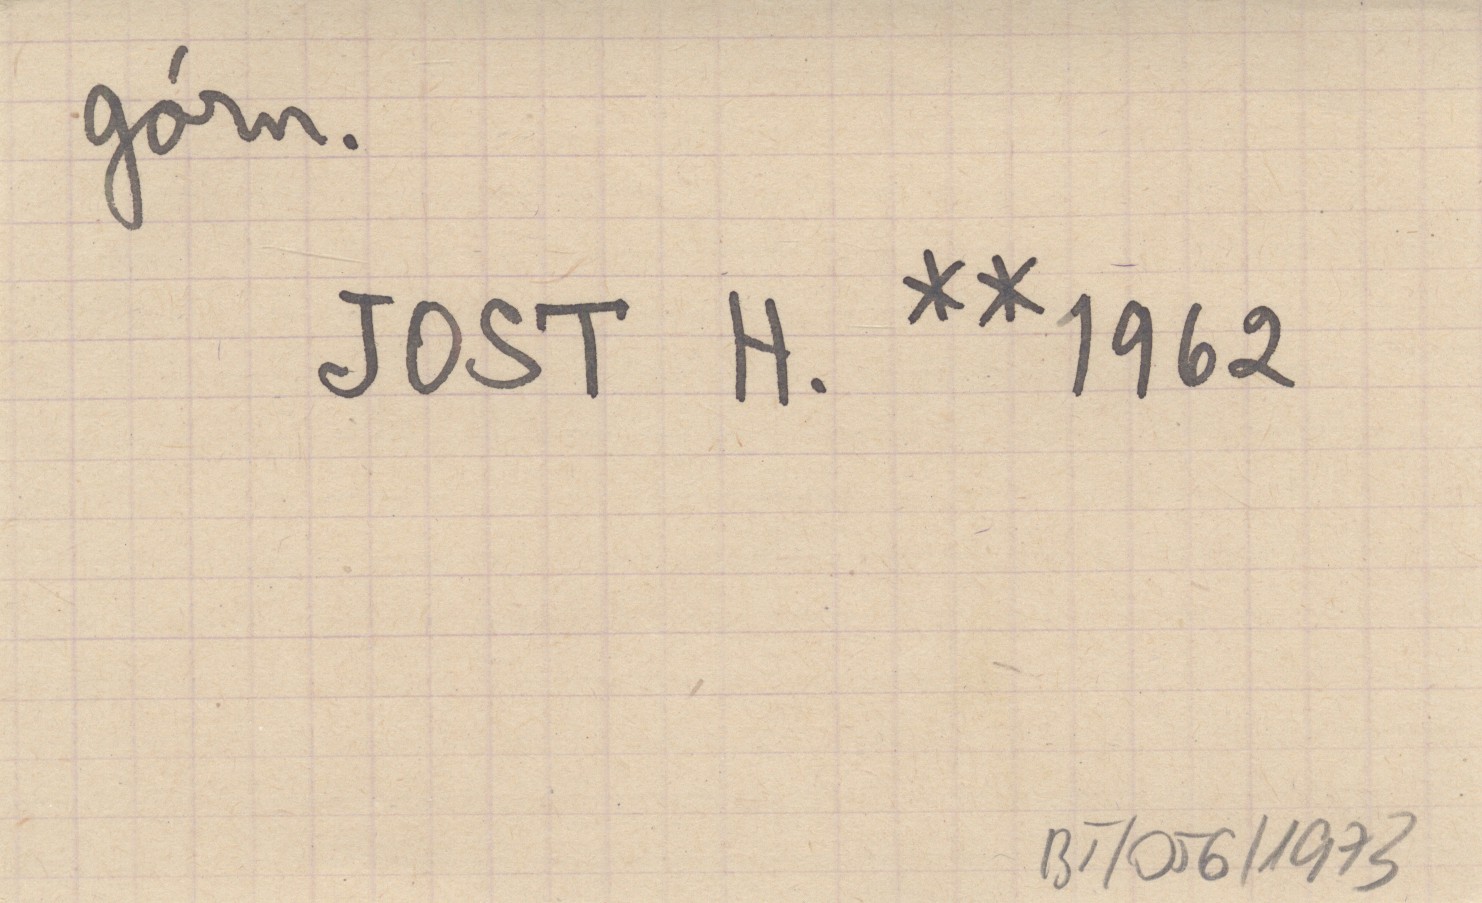 górn.
JOST H. **1962
BI/056/1973